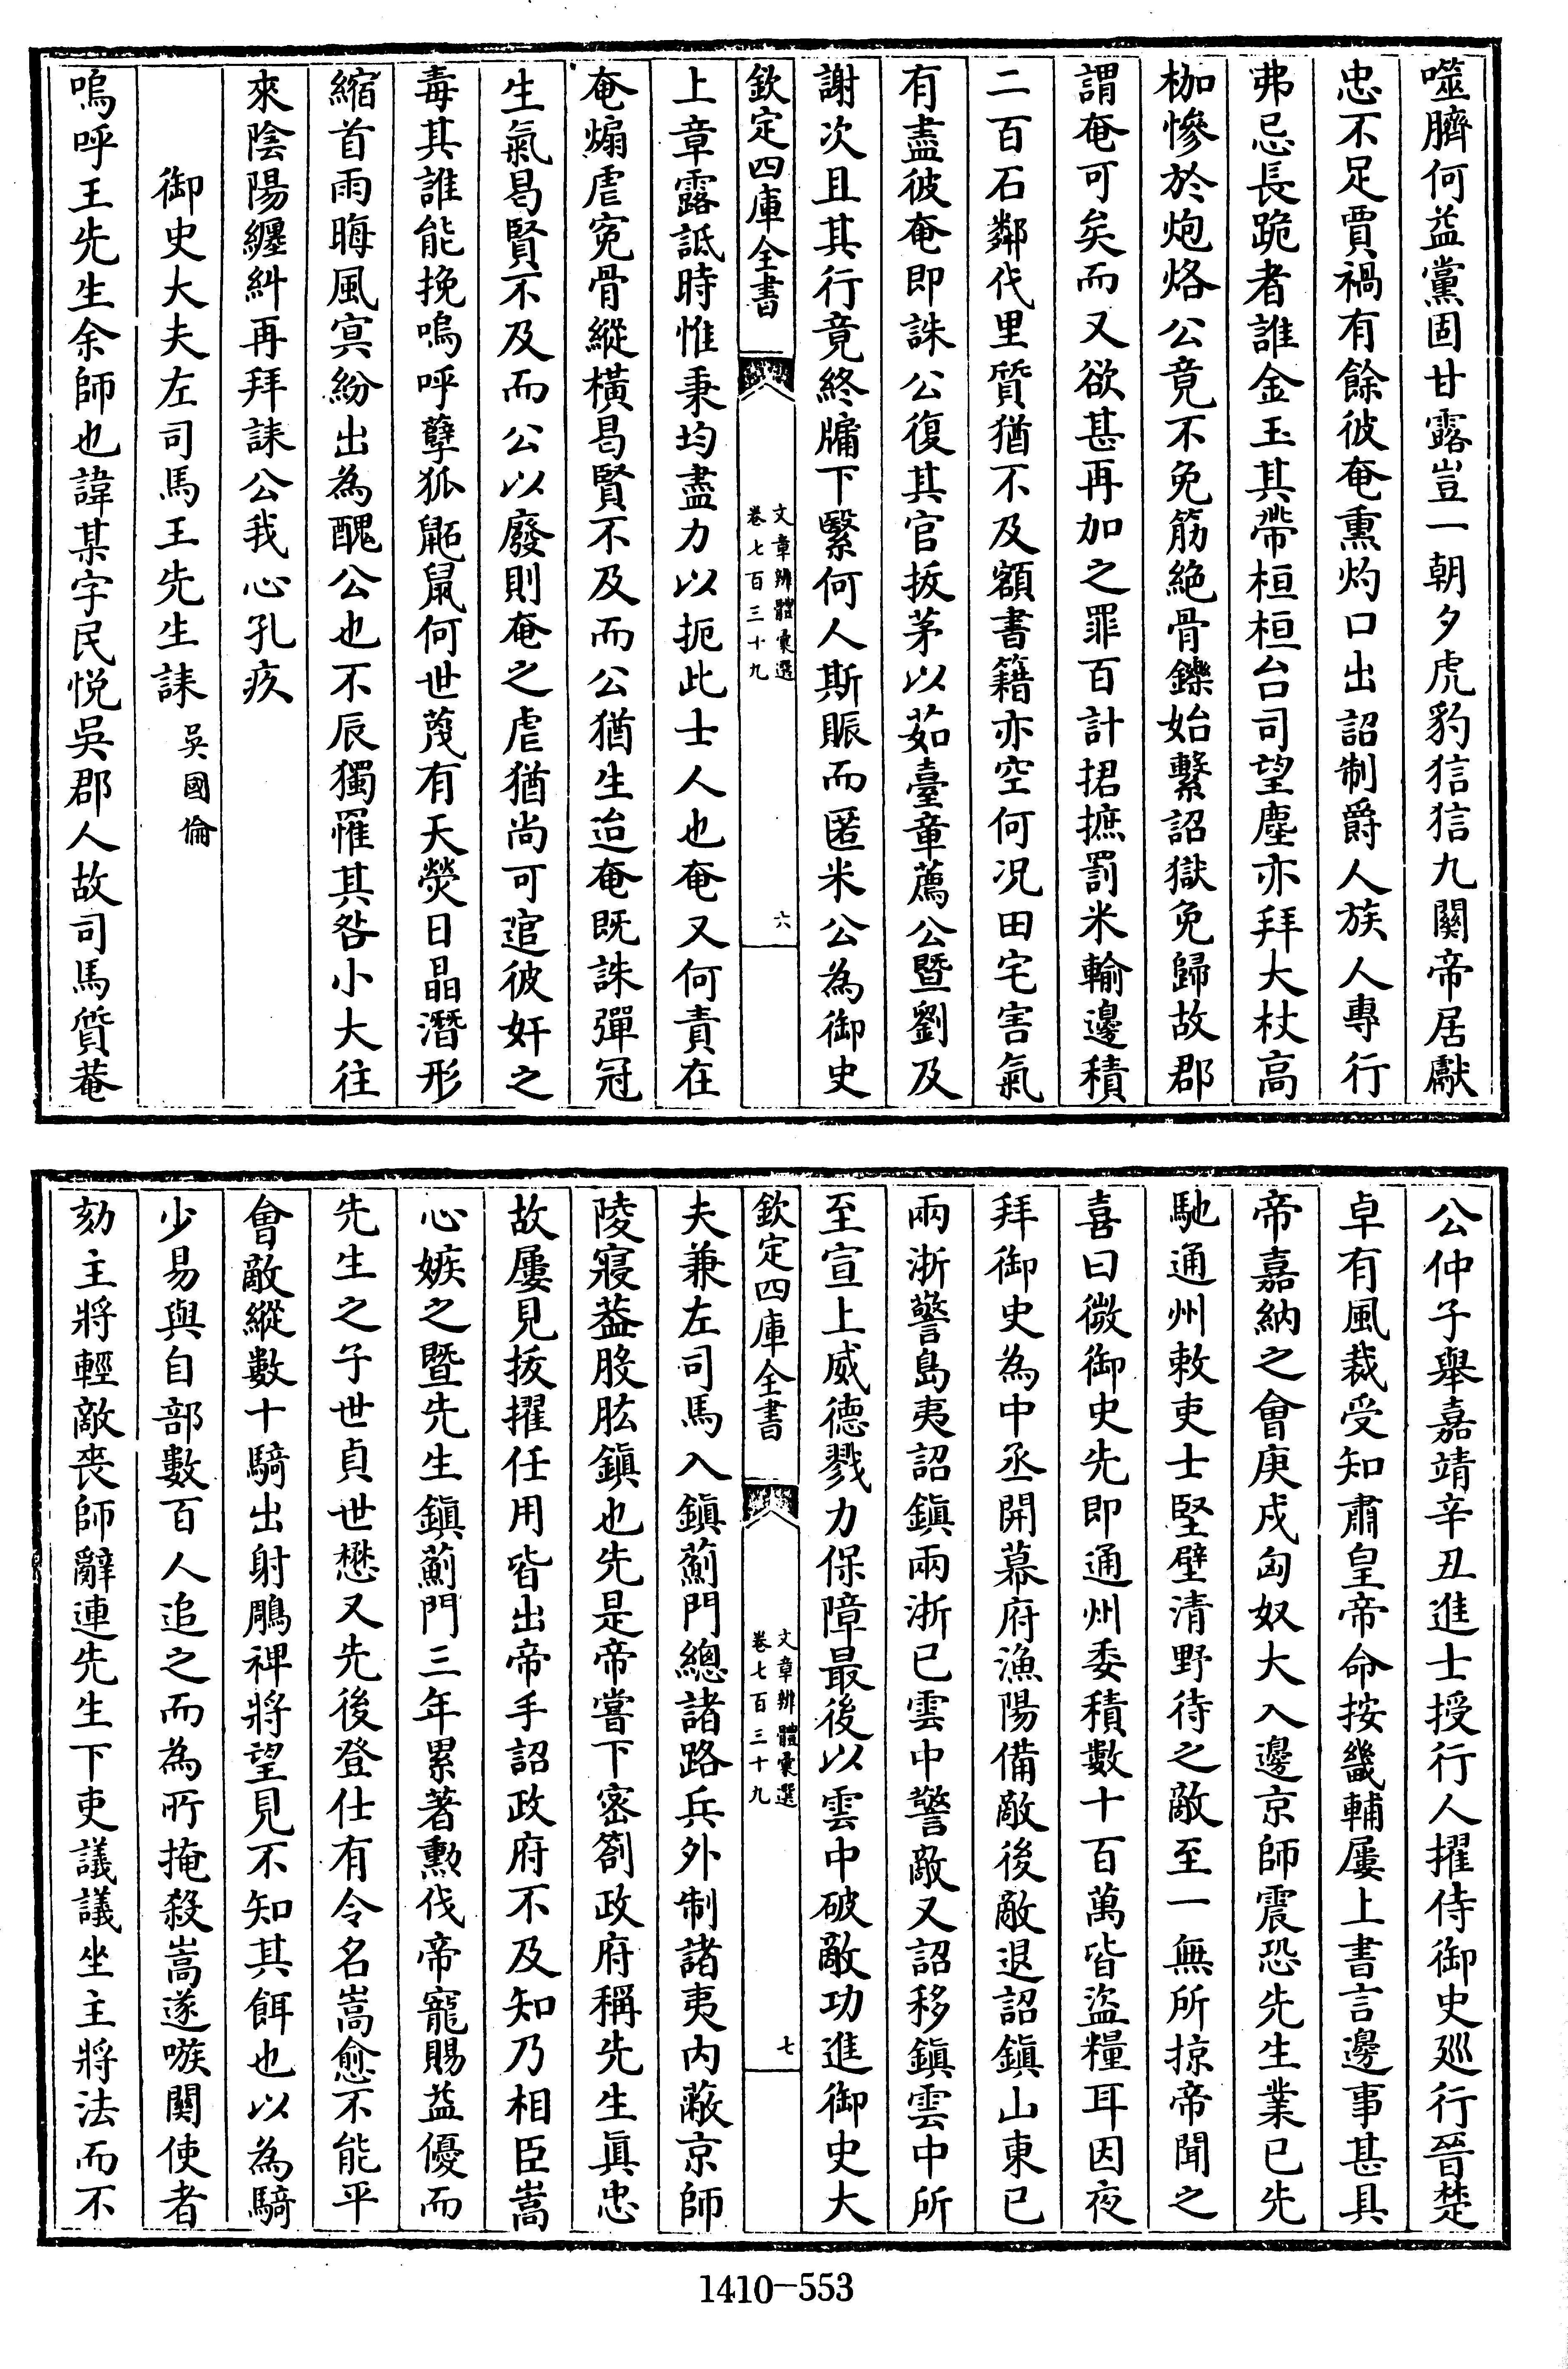 噬臍何益黨固甘露豈一朝夕虎豹狺狺九闗帝居厭
忠不足賈禍有餘彼奄熏灼口出詔制爵人族人專行
弗忌長跪者誰金玉其帶桓桓台司望塵亦拜大杖高
枷慘於炮烙公竟不免筋絶骨鑠始繫詔獄免歸故郡
謂奄可矣而又欲甚再加之罪百計捃摭罰米輸邊積
二百石鄰代里質猶不及額書籍亦空何況田宅害氣
有盡彼奄即誅公復其官拔茅以茹臺章薦公暨劉及
謝次且其行竟終牖下繄何人斯賑而匿米公為御史
欽定四庫全書
文章辨體彚選
卷七百三十九
六
上章露詆時惟秉均盡力以扼此士人也奄又何責在
奄煽虐寃骨縱橫曷賢不及而公猶生迨奄既誅彈冠
生氣曷賢不及而公以廢則奄之虐猶尚可逭彼奸之
毒其誰能挽嗚呼孽狐鼫鼠何世蔑有天熒日晶潛形
縮首雨晦風㝠紛出為醜公也不辰獨罹其咎小大往
來陰陽纏糾再拜誄公我心孔疚
御史大夫左司馬王先生誄 吳國倫
嗚呼王先生余師也諱某字民悅吳郡人故司馬質菴
公仲子舉嘉靖辛丑進士授行人擢侍御史廵行晉楚
卓有風裁受知肅皇帝命按畿輔屢上書言邊事甚具
帝嘉納之會庚戌匈奴大入邊京師震恐先生業已先
馳通州敕吏士堅壁清野待之敵至一無所掠帝聞之
喜曰微御史先即通州委積數十百萬皆盜糧耳因夜
拜御史為中丞開幕府漁陽備敵後敵退詔鎮山東已
兩浙警島夷詔鎮兩浙已雲中警敵又詔移鎮雲中所
至宣上威德戮力保障最後以雲中破敵功進御史大
欽定四庫全書
文章辨體彚選
卷七百三十九
七
夫兼左司馬入鎮薊門總諸路兵外制諸夷内蔽京師
陵寢葢股肱鎮也先是帝嘗下密劄政府稱先生真忠
故屢見拔擢任用皆出帝手詔政府不及知乃相臣嵩
心嫉之暨先生鎮薊門三年累著勲伐帝寵賜益優而
先生之子世貞世懋又先後登仕有令名嵩愈不能平
會敵縱數十騎出射鵰裨將望見不知其餌也以為騎
少易與自部數百人追之而為所掩殺嵩遂嗾闗使者
劾主將輕敵喪師辭連先生下吏議議坐主將法而不
1410-553